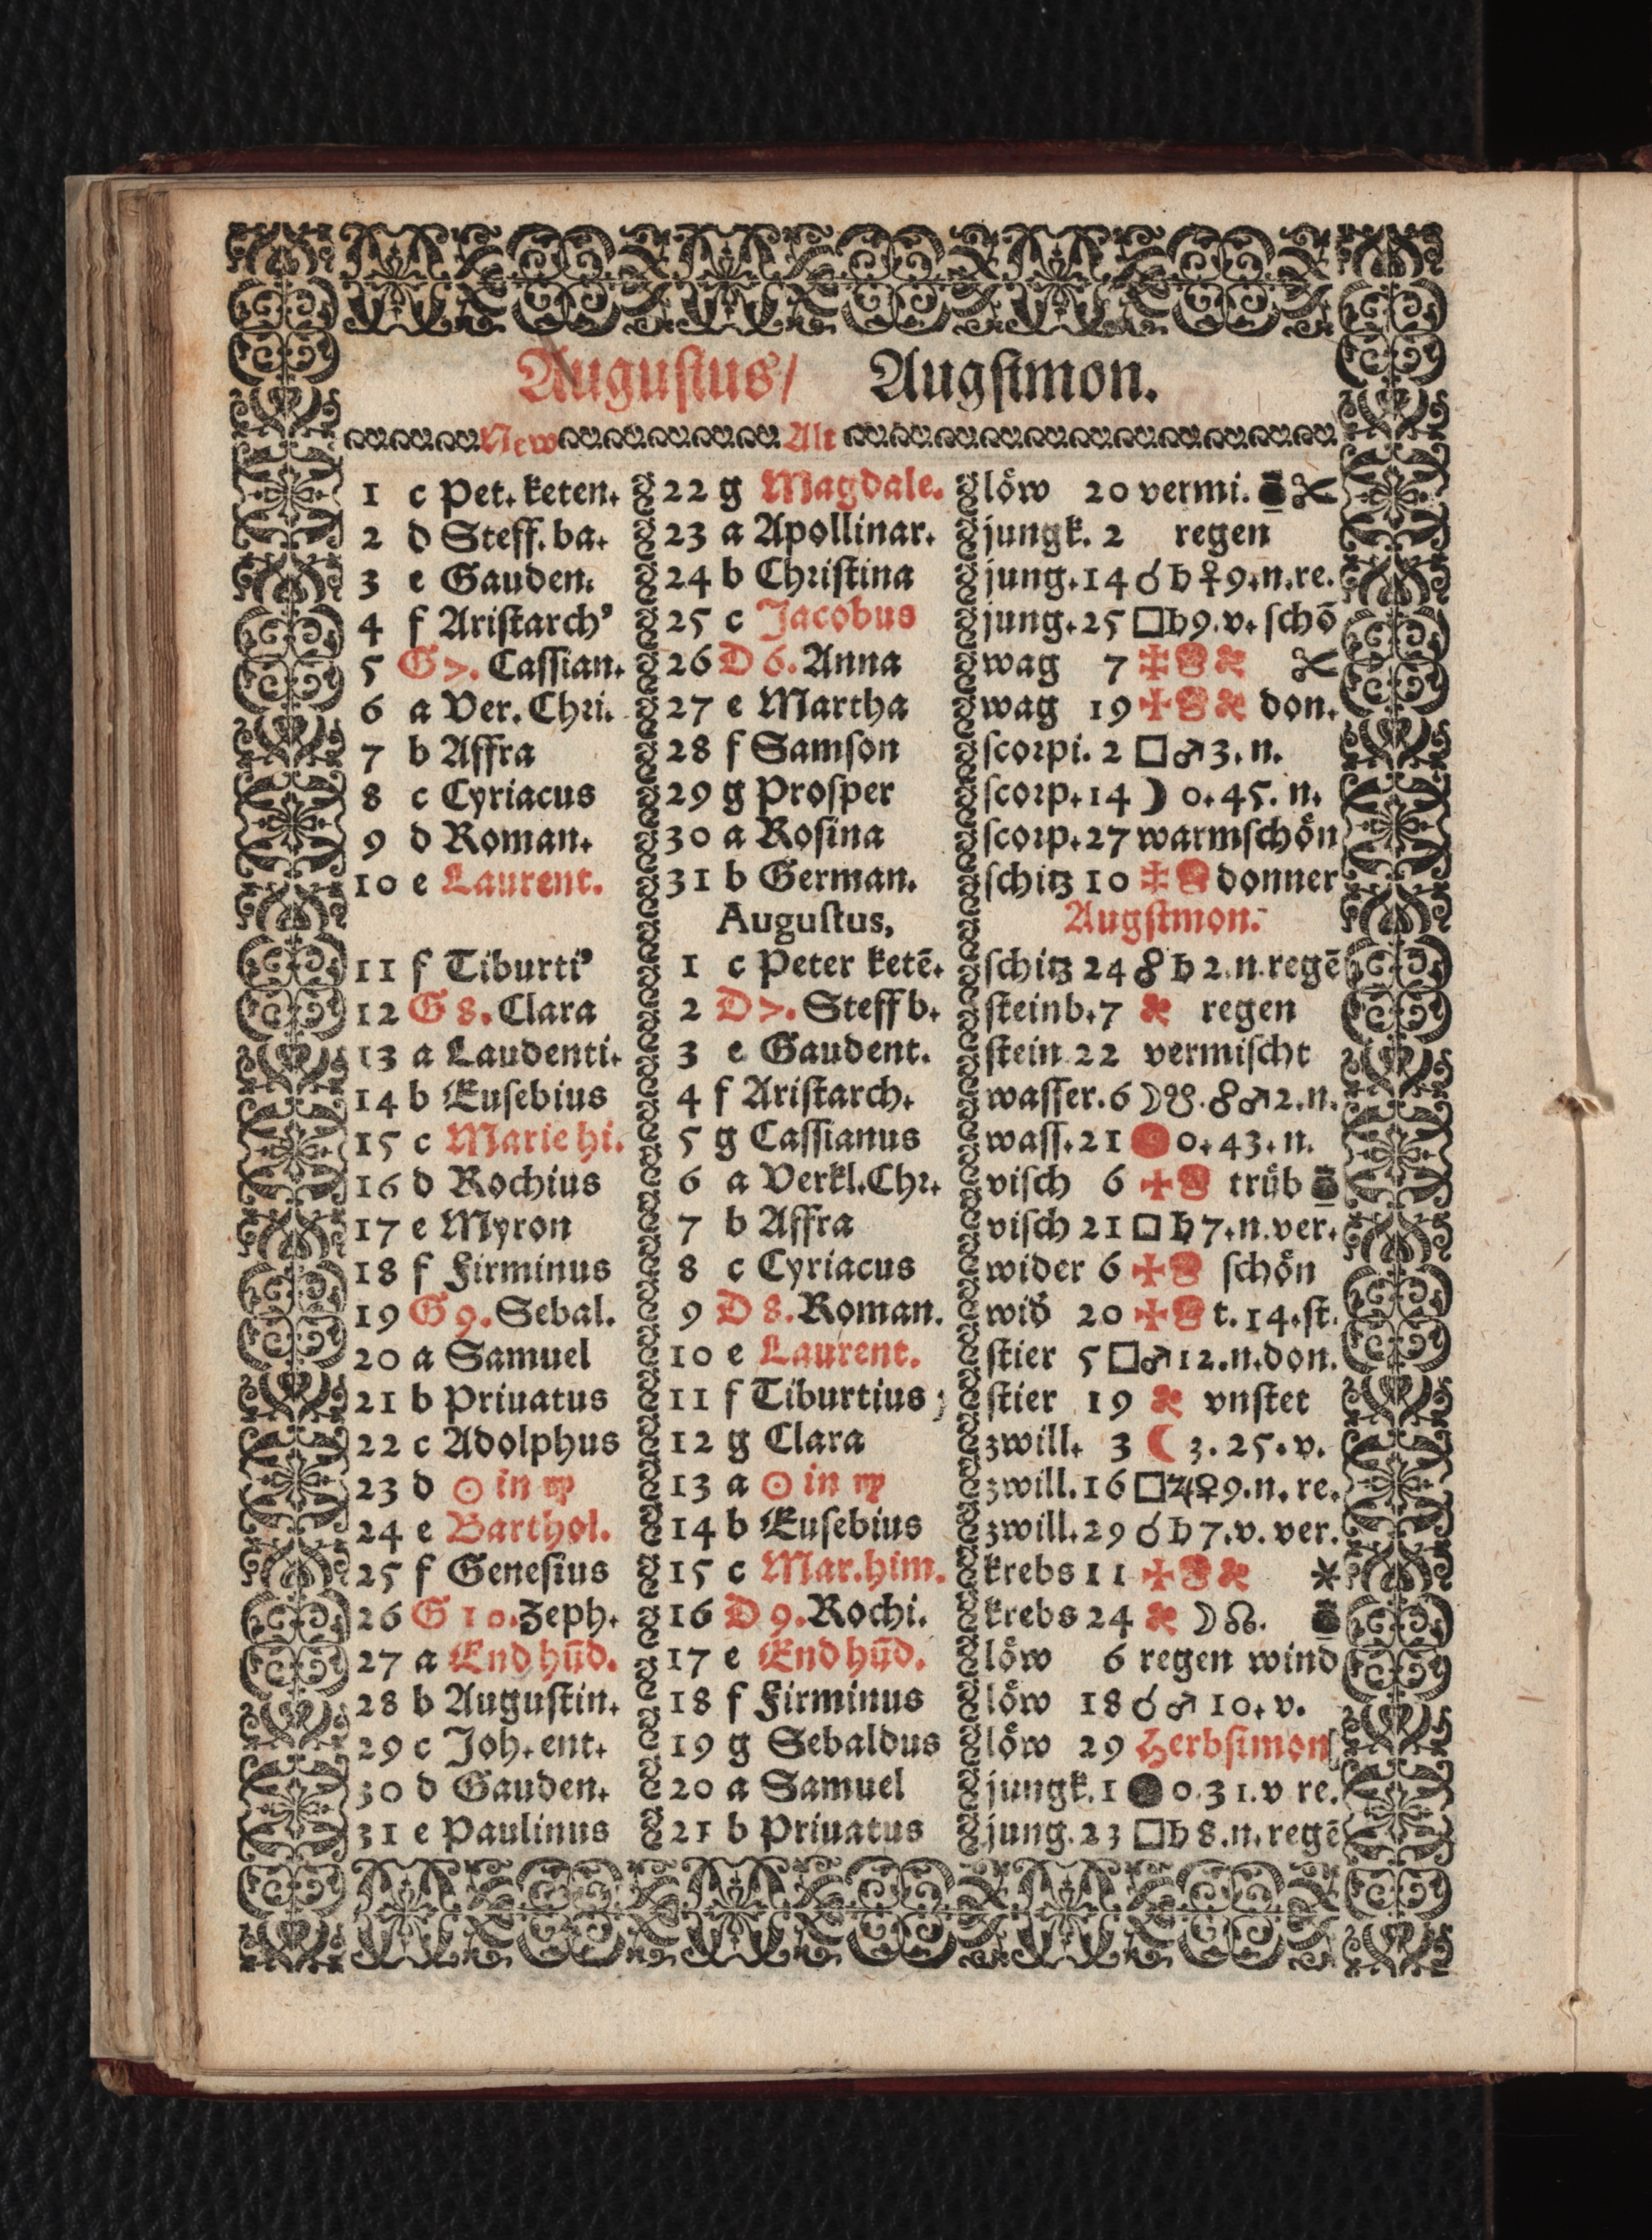 Augustus/ Augstmon.
New Alt
1 c Pet. keten. 22 g Magdale. löw 20 vermi.
2 d Steff. ba. 23 a Apollinar. jungk. 2 regen
3 e Gauden. 24 b Christina jung. 14 ☌ ♄ ♀ 9. n. re.
4 f Aristarch' 25 c Jacobus jung. 25 □ ♄ 9. v. schō
5 G 7. Cassian. 26 D 6. Anna wag 7
6 a Ver. Chri. 27 e Martha wag 19 don.
7 b Affra 28 f Samson scorpi. 2 □ ♂ 3. n.
8 c Cyriacus 29 g Prosper scorp. 14 ☽ 0. 45. n.
9 d Roman. 30 a Rosina scorp. 27 warmschön
10 e Laurent. 31 b German. schitz 10 donner
Augustus, Augstmon.
11 f Tiburti' 1 c Peter ketē. schitz 24 ☍ ♄ 2. n. regē
12 G 8. Clara 2 D 7. Steff b. steinb. 7 regen
13 a Laudenti. 3 e Gaudent. stein 22 vermischt
14 b Eusebius 4 f Aristarch. wasser. 6 ☽ ☋. ☍ ♂ 2. n.
15 c Marie hi. 5 g Cassianus wass. 21 0. 43. n.
16 d Rochius 6 a Verkl. Chr. visch 6 trüb
17 e Myron 7 b Affra visch 21 □ ♄ 7. n. ver.
18 f Firminus 8 c Cyriacus wider 6 schön
19 G 9. Sebal. 9 D 8. Roman. wid 20 t. 14. st.
20 a Samuel 10 e Laurent. stier 5 □ ♂ 12. n. don.
21 b Priuatus 11 f Tiburtius stier 19 vnstet
22 c Adolphus 12 g Clara zwill. 3 ☾ 3. 25. v.
23 d ☉ in ♍ 13 a ☉ in ♍ zwill. 16 □ ♃ ♀ 9. n. re.
24 e Barthol. 14 b Eusebius zwill. 29 ☌ ♄ 7. v. ver.
25 f Genesius 15 c Mar. him. krebs 11
26 G 10. Zeph. 16 D 9. Rochi. krebs 24 ☽ ☊.
27 a End hūd. 17 e End hūd. löw 6 regen wind
28 b Augustin. 18 f Firminus löw 18 ☌ ♂ 10. v.
29 c Joh. ent. 19 g Sebaldus löw 29 Herbstmon
30 d Gauden. 20 a Samuel jungk. 1 ● 0. 31. v re.
31 e Paulinus 21 b Priuatus jung. 23 □ ♄ 8. n. regē